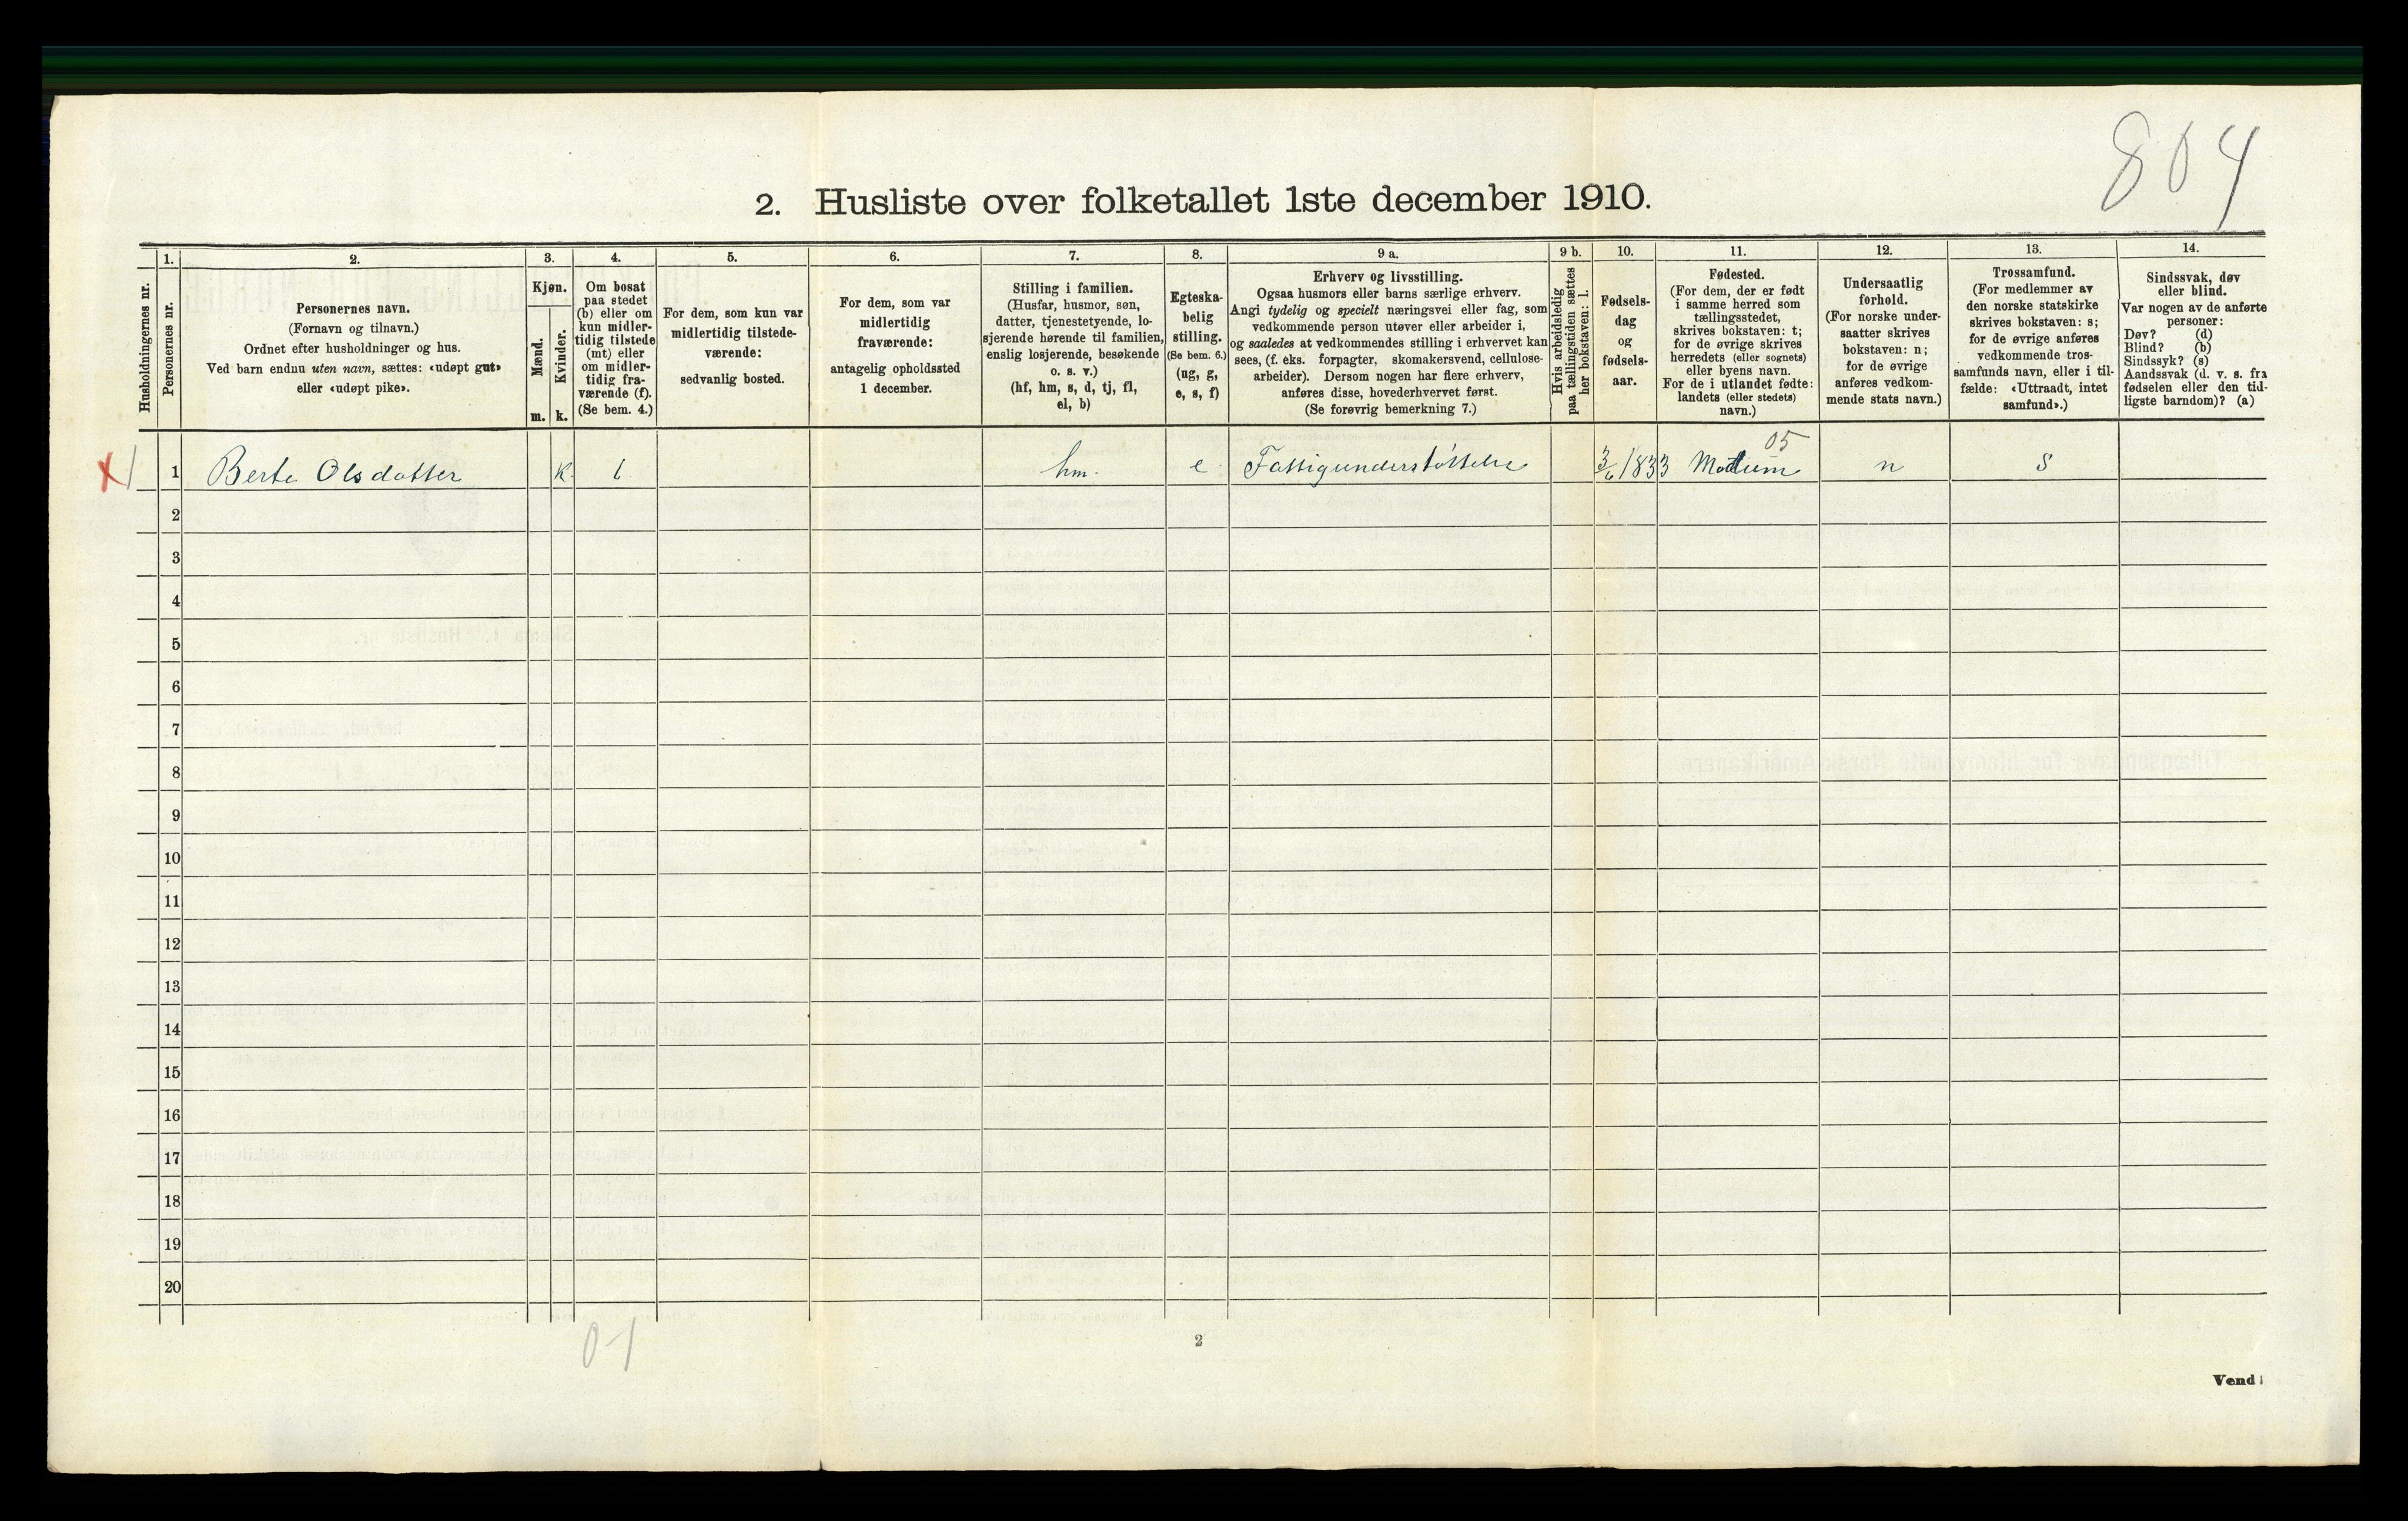 804
2. Husliste over folketallet 1ste december 1910.
Husholdningernes nr.
1.
Personernes nr.
2.
Personernes navn.
(Fornavn og tilnavn.)
Ordnet efter husholdninger og hus.
Ved barn endnu uten navn, sættes: «udøpt gut»
eller «udøpt pike».
3.
Kjøn.
Mænd.
Kvinder.
m. k.
4.
Om bosat
paa stedet
(b) eller om
kun midler-
tidig tilstede
(mt) eller
om midler-
tidig fra-
værende (f).
(Se bem. 4.)
5.
For dem, som kun var
midlertidig tilstede-
værende:
sedvanlig bosted.
6.
For dem, som var
midlertidig
fraværende:
antagelig opholdssted
1 december.
7.
Stilling i familien.
(Husfar, husmor, søn,
datter, tjenestetyende, lo-
sjerende hørende til familien,
enslig losjerende, besøkende
o. s. v.)
(hf, hm, s, d, tj, fl,
el, b)
8.
Egteska-
belig
stilling.
(Se bem. 6.)
(ug, g,
e, s, f)
9 a.
Erhverv og livsstilling.
Ogsaa husmors eller barns særlige erhverv.
Angi tydelig og specielt næringsvei eller fag, som
vedkommende person utøver eller arbeider i,
og saaledes at vedkommendes stilling i erhvervet kan
sees, (f. eks. forpagter, skomakersvend, cellulose-
arbeider). Dersom nogen har flere erhverv,
anføres disse, hovederhvervet først.
(Se forøvrig bemerkning 7.)
9 b.
Hvis arbeidsledig
paa tællingstiden sættes
her bokstaven: l.
10.
Fødsels-
dag
og
fødsels-
aar.
11.
Fødested.
(For dem, der er født
i samme herred som
tællingsstedet,
skrives bokstaven: t;
for de øvrige skrives
herredets (eller sognets)
eller byens navn.
For de i utlandet fødte:
landets (eller stedets)
navn.)
12.
Undersaatlig
forhold.
(For norske under-
saatter skrives
bokstaven: n;
for de øvrige
anføres vedkom-
mende stats navn.)
13.
Trossamfund.
(For medlemmer av
den norske statskirke
skrives bokstaven: s;
for de øvrige anføres
vedkommende tros-
samfunds navn, eller i til-
fælde: «Uttraadt, intet
samfund».)
14.
Sindssvak, døv
eller blind.
Var nogen av de anførte
personer:
Døv? (d)
Blind? (b)
Sindssyk? (s)
Aandssvak (d. v. s. fra
fødselen eller den tid-
ligste barndom)? (a)
05
X 1 Berte Olsdatter K. b hm. e Fattigunderstøttelse 3/6 1833 Modum n S
2
3
4
5
6
7
8
9
10
11
12
13
14
15
16
17
18
19
20
0-1
2
Vend!